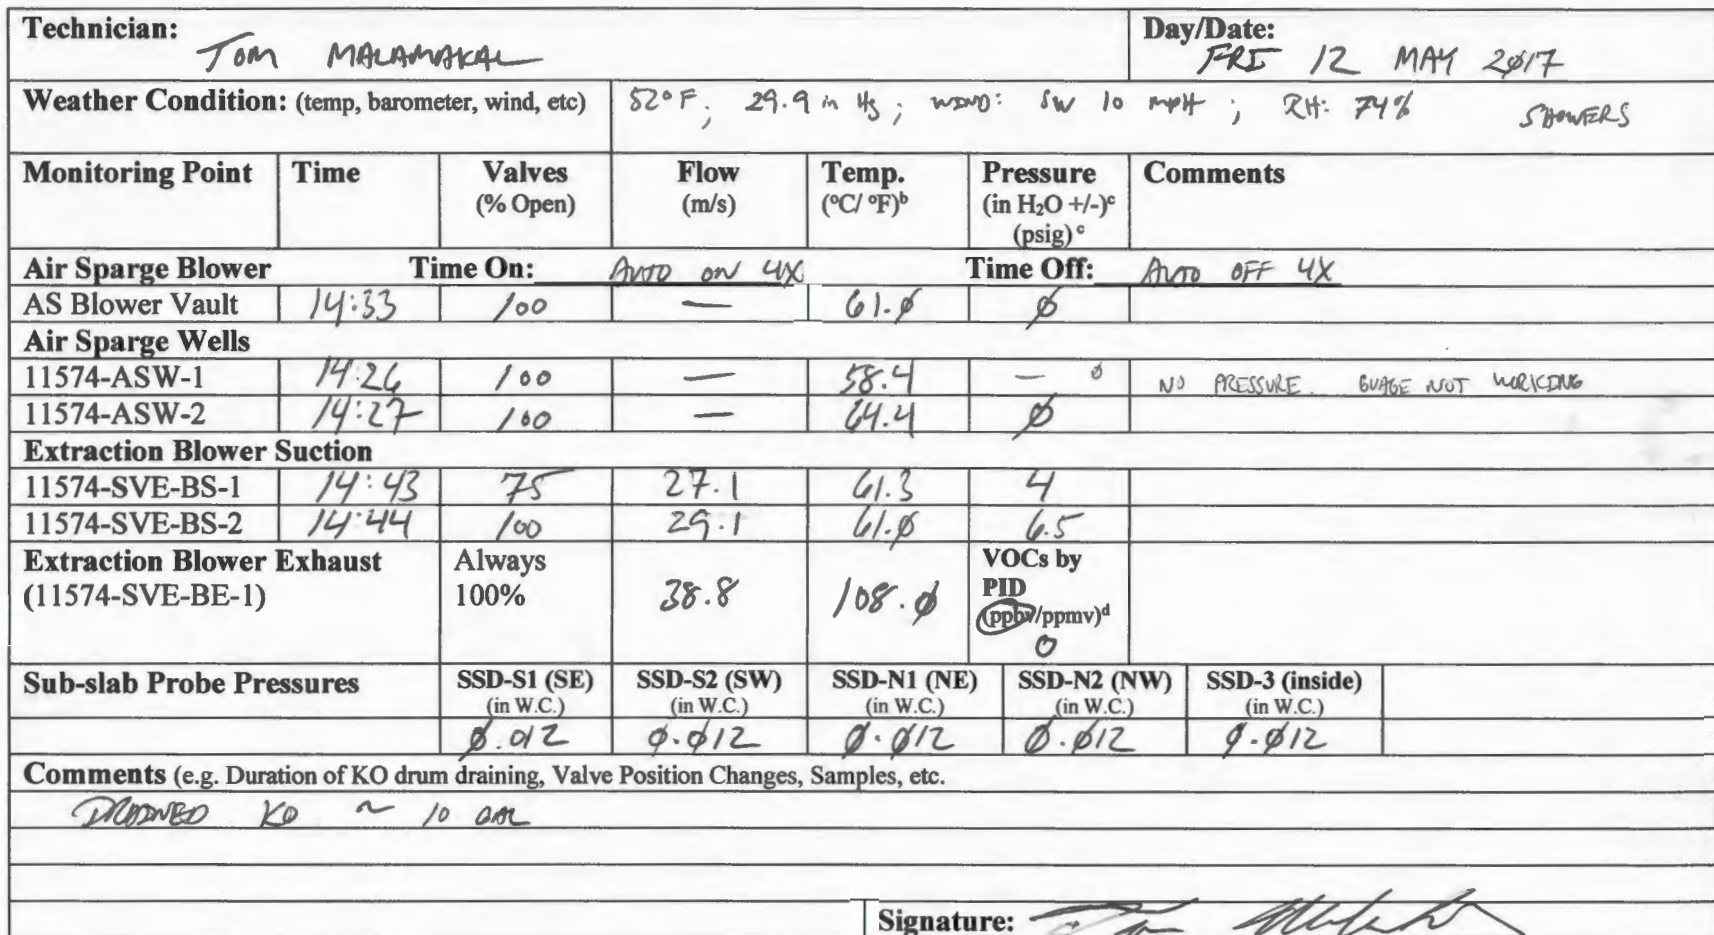 Technician: Day/Date:
TOM MALAMAKAL FRI 12 MAY 2017
Weather Condition: (temp, barometer, wind, etc) 52°F; 29.9 in Hg; WIND: SW 10 MPH; RH: 74% SHOWERS
Monitoring Point Time Valves Flow Temp. Pressure Comments
(% Open) (m/s) (°C/ °F)ᵇ (in H₂O +/-)ᶜ
(psig) ᶜ
Air Sparge Blower Time On: AUTO ON 4X Time Off: AUTO OFF 4X
AS Blower Vault 14:33 100 — 61.0 0
Air Sparge Wells
11574-ASW-1 14:26 100 — 58.4 — 0 NO PRESSURE. GUAGE NOT WORKING
11574-ASW-2 14:27 100 — 64.4 0
Extraction Blower Suction
11574-SVE-BS-1 14:43 75 27.1 61.3 4
11574-SVE-BS-2 14:44 100 29.1 61.0 6.5
Extraction Blower Exhaust Always VOCs by
(11574-SVE-BE-1) 100% 38.8 108.0 PID
(ppbv/ppmv)ᵈ
0
Sub-slab Probe Pressures SSD-S1 (SE) SSD-S2 (SW) SSD-N1 (NE) SSD-N2 (NW) SSD-3 (inside)
(in W.C.) (in W.C.) (in W.C.) (in W.C.) (in W.C.)
0.012 0.012 0.012 0.012 0.012
Comments (e.g. Duration of KO drum draining, Valve Position Changes, Samples, etc.
DRAINED KO ~ 10 GAL
Signature: